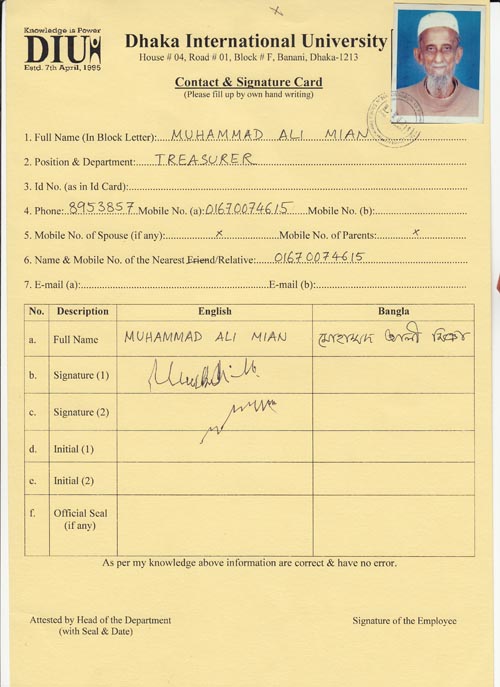 Knowledge is Power
DIU
Estd. 7th April, 1995
Dhaka International University
House # 04, Road # 01, Block # F, Banani, Dhaka-1213
Contact & Signature Card
(Please fill up by own hand writing)
1. Full Name (In Block Letter): MUHAMMAD ALI MIAN
2. Position & Department: TREASURER
3. Id No. (as in Id Card):
4. Phone: 8953857 Mobile No. (a): 01670074615 Mobile No. (b):
5. Mobile No. of Spouse (if any): x Mobile No. of Parents: x
6. Name & Mobile No. of the Nearest Friend/Relative: 01670074615
7. E-mail (a): E-mail (b):
No. Description English Bangla
a. Full Name MUHAMMAD ALI MIAN মোহাম্মদ আলী মিঞা
b. Signature (1)
c. Signature (2)
d. Initial (1)
e. Initial (2)
f. Official Seal
(if any)
As per my knowledge above information are correct & have no error.
Attested by Head of the Department Signature of the Employee
(with Seal & Date)